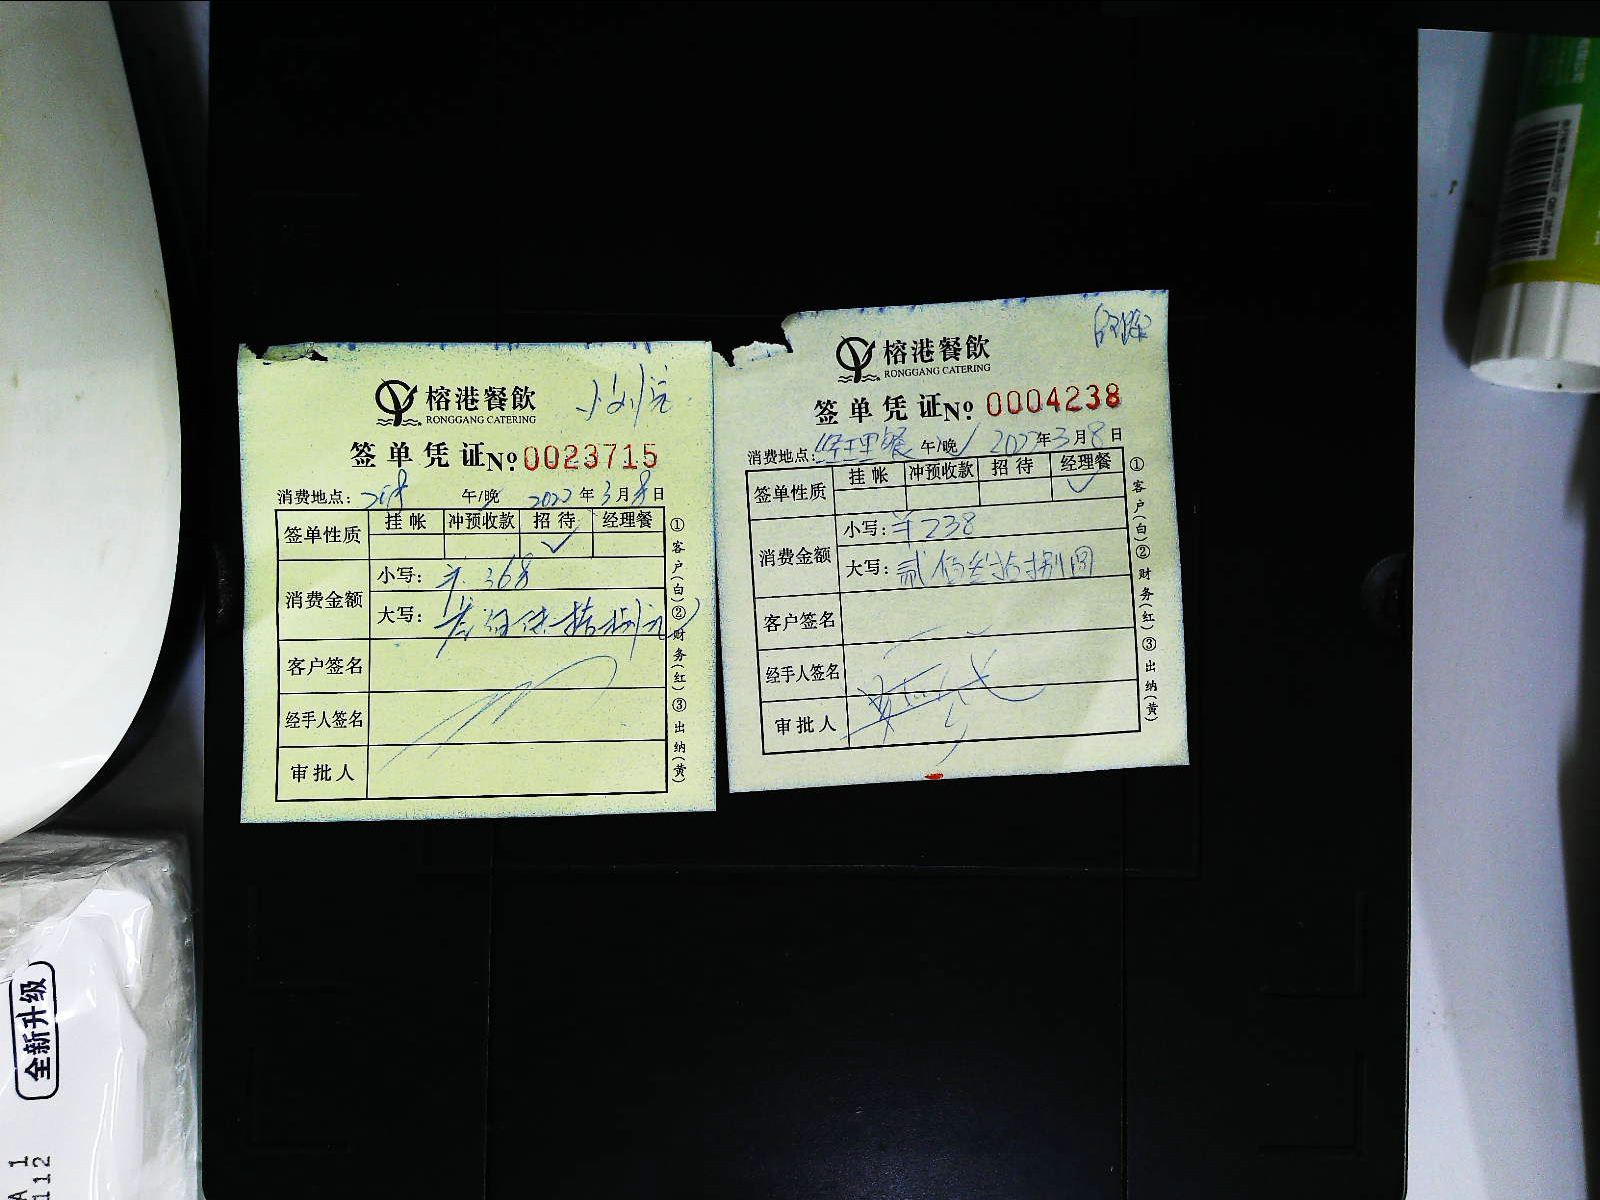 榕港餐飲
RONGGANG CATERING
签单凭证No. 0023715
消费地点: 268 午/晚 2022年3月8日
签单性质 挂帐 冲预收款 招待 经理餐
✓
消费金额 小写: ¥368
大写: 叁佰陆拾捌元
客户签名
经手人签名
审批人
①客户(白)②财务(红)③出纳(黄)
榕港餐飲
RONGGANG CATERING
签单凭证No. 0004238
消费地点: 经理餐 午/晚✓ 2022年3月8日
签单性质 挂帐 冲预收款 招待 经理餐
✓
消费金额 小写: ¥238
大写: 贰佰叁拾捌圆
客户签名
经手人签名
审批人
①客户(白)②财务(红)③出纳(黄)
全新升级
A 1
112